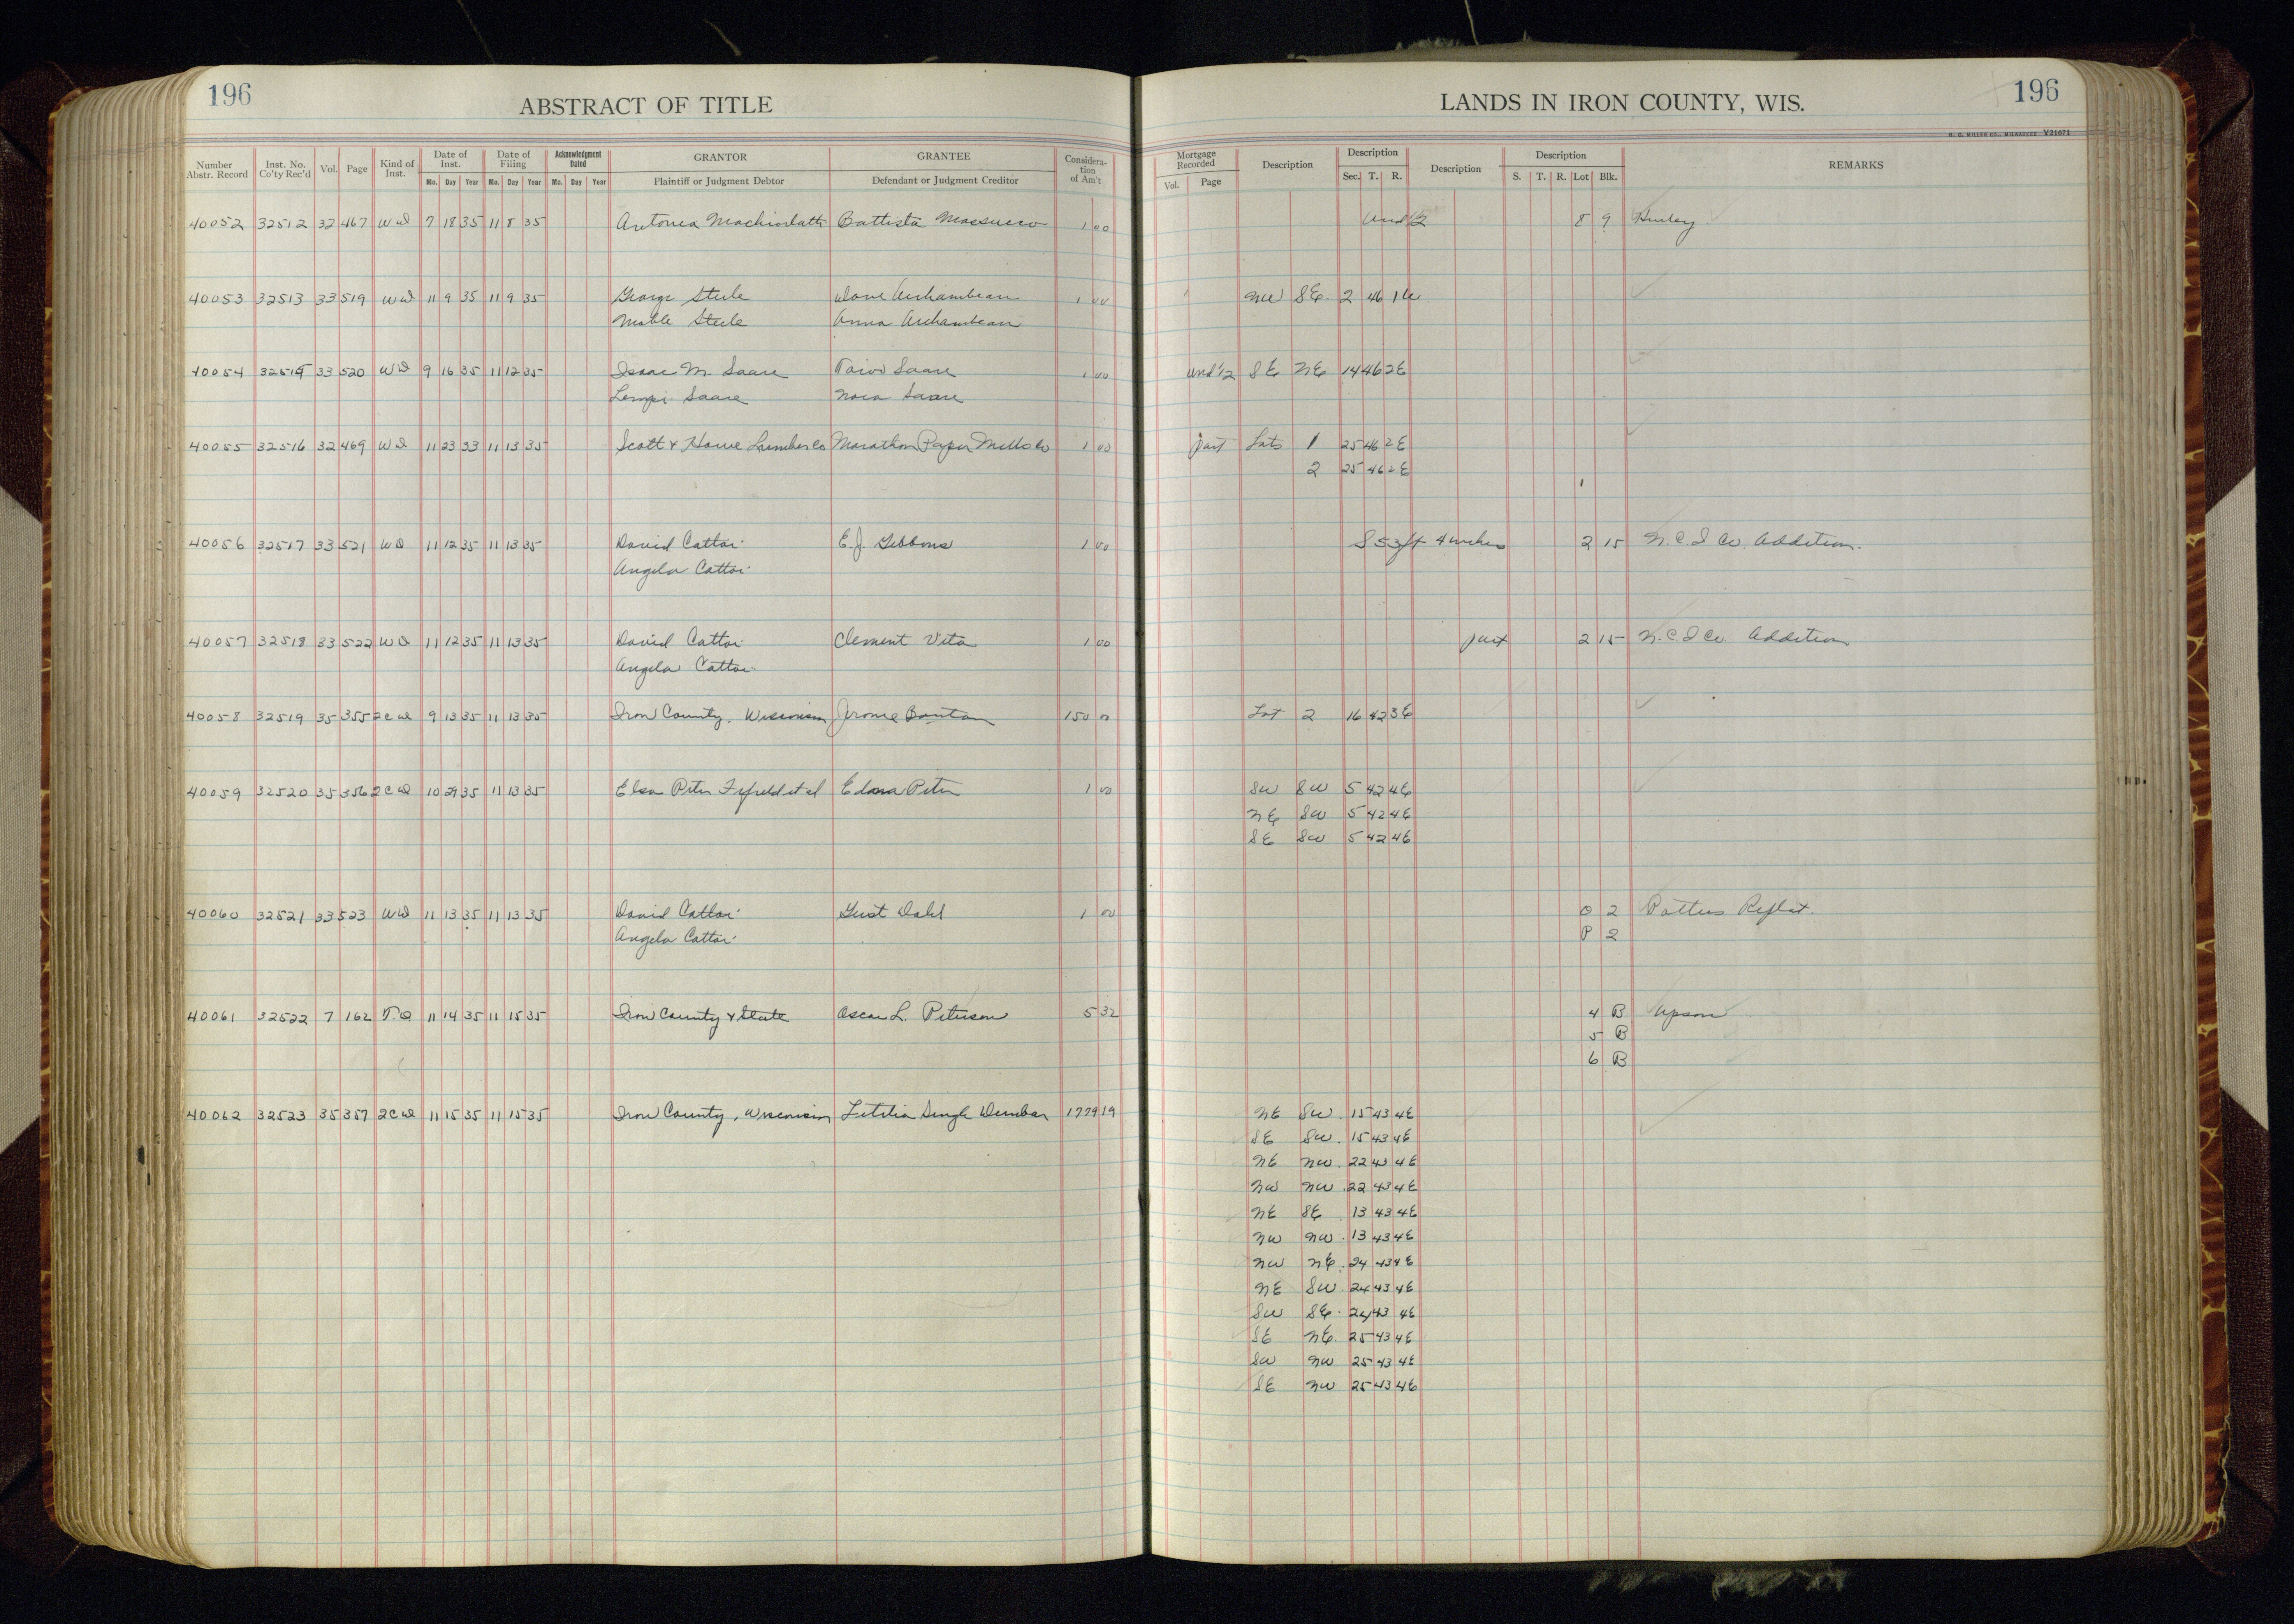 196
ABSTRACT OF TITLE
LANDS IN IRON COUNTY, WIS.
196
H. G. MILLER CO., MILWAUKEE V21671
Number Abstr. Record Inst. No. Co'ty Rec'd Vol. Page Kind of Inst. Date of Inst. Date of Filing Acknowledgment Dated GRANTOR GRANTEE Considera-tion of Am't Mortgage Recorded Description Description Description Description REMARKS
Mo. Day Year Mo. Day Year Mo. Day Year Plaintiff or Judgment Debtor Defendant or Judgment Creditor Vol. Page Sec. T. R. S. T. R. Lot Blk.
40052 32512 32 467 WD 7 18 35 11 8 35 Battista Massucco 1 00 Und 1/2 8 9 Hurley
40053 32513 33 519 WD 11 9 35 11 9 35 George Steele Dave Archambeau 1 00 NW SE 2 46 1E
Mable Steele Anna Archambeau
40054 32515 33 520 WD 9 16 35 11 12 35 Isaac M. Saare Toivo Saare 1 00 Und 1/2 SE NE 14 46 2E
Lempi Saare Nora Saare
40055 32516 32 469 WD 11 23 33 11 13 35 Scott & Howe Lumber Co Marathon Paper Mills Co 1 00 part Lots 1 25 46 2E
2 25 46 2E
40056 32517 33 521 WD 11 12 35 11 13 35 David Cattoi E. J. Gibbons 1 00 S 53 ft 4 inches 2 15 N. C. I Co. Addition.
Angela Cattoi
40057 32518 33 522 WD 11 12 35 11 13 35 David Cattoi Clement Vita 1 00 part 2 15 N. C. I Co. Addition
Angela Cattoi
40058 32519 35 355 2CD 9 13 35 11 13 35 Iron County, Wisconsin Jerome 150 00 Lot 2 16 42 3E
40059 32520 35 356 2CD 10 29 35 11 13 35 Elsa Peter Fifield et al Edna Peter 1 00 SW SW 5 42 4E
NE SW 5 42 4E
SE SW 5 42 4E
40060 32521 33 523 WD 11 13 35 11 13 35 David Cattoi Gust Dahl 1 00 O 2 Potters Replat.
Angela Cattoi P 2
40061 32522 7 162 T.D 11 14 35 11 15 35 Iron County & State Oscar L. Peterson 5 32 4 B Upson
5 B
6 B
40062 32523 35 357 2CD 11 15 35 11 15 35 Iron County, Wisconsin Letitia Singh Dunbar 1779 19 NE SW 15 43 4E
SE SW 15 43 4E
NE NW 22 43 4E
NW NW 22 43 4E
NE SE 13 43 4E
NW NW 13 43 4E
NW NE 24 43 4E
NE SW 24 43 4E
SW SE 24 43 4E
SE NE 25 43 4E
SW NW 25 43 4E
SE NW 25 43 4E